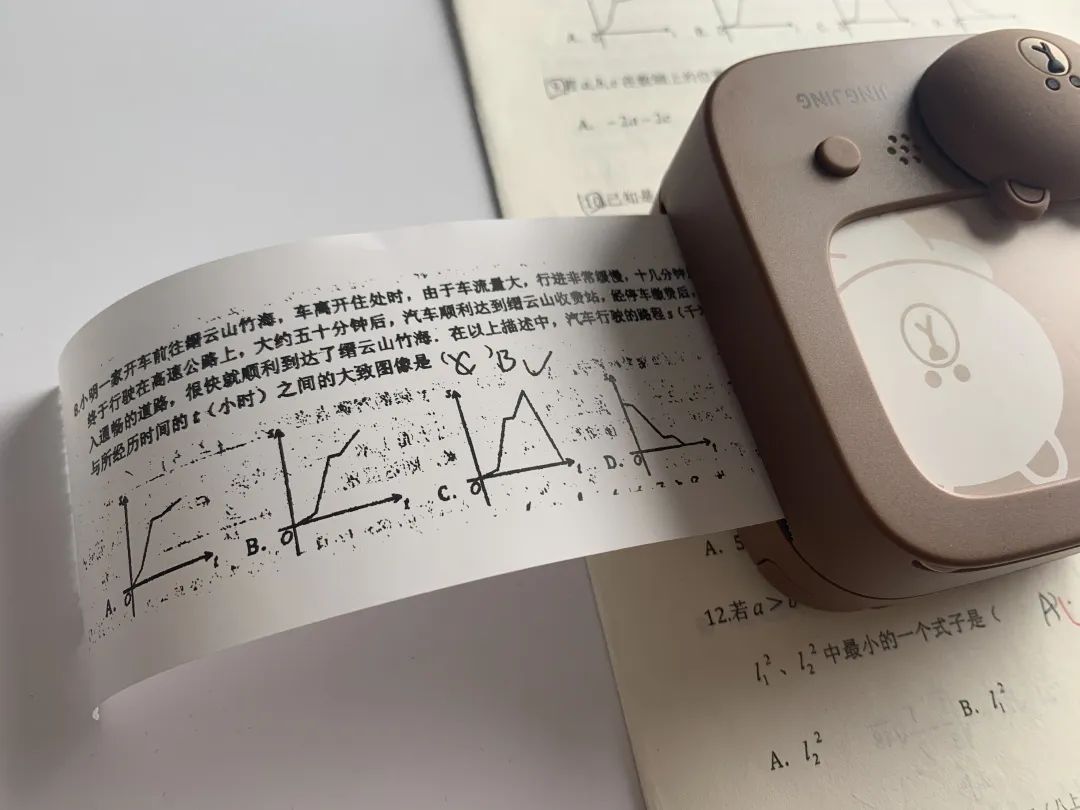 A. B. C.
A. −2a−2c
10.已知是
JINGJING
8.小明一家开车前往缙云山竹海,车离开住处时,由于车流量大,行进非常缓慢,十几分钟
终于行驶在高速公路上,大约五十分钟后,汽车顺利达到缙云山收费站,经停车缴费后,
入通畅的道路,很快就顺利到达了缙云山竹海.在以上描述中,汽车行驶的路程s(千
与所经历时间的t(小时)之间的大致图像是( )B✓
A. O t
B. O t
C. O t
D. O t
A. 5
12.若a>
l₁²、l₂²中最小的一个式子是(
A. l₂²
B. l₁²